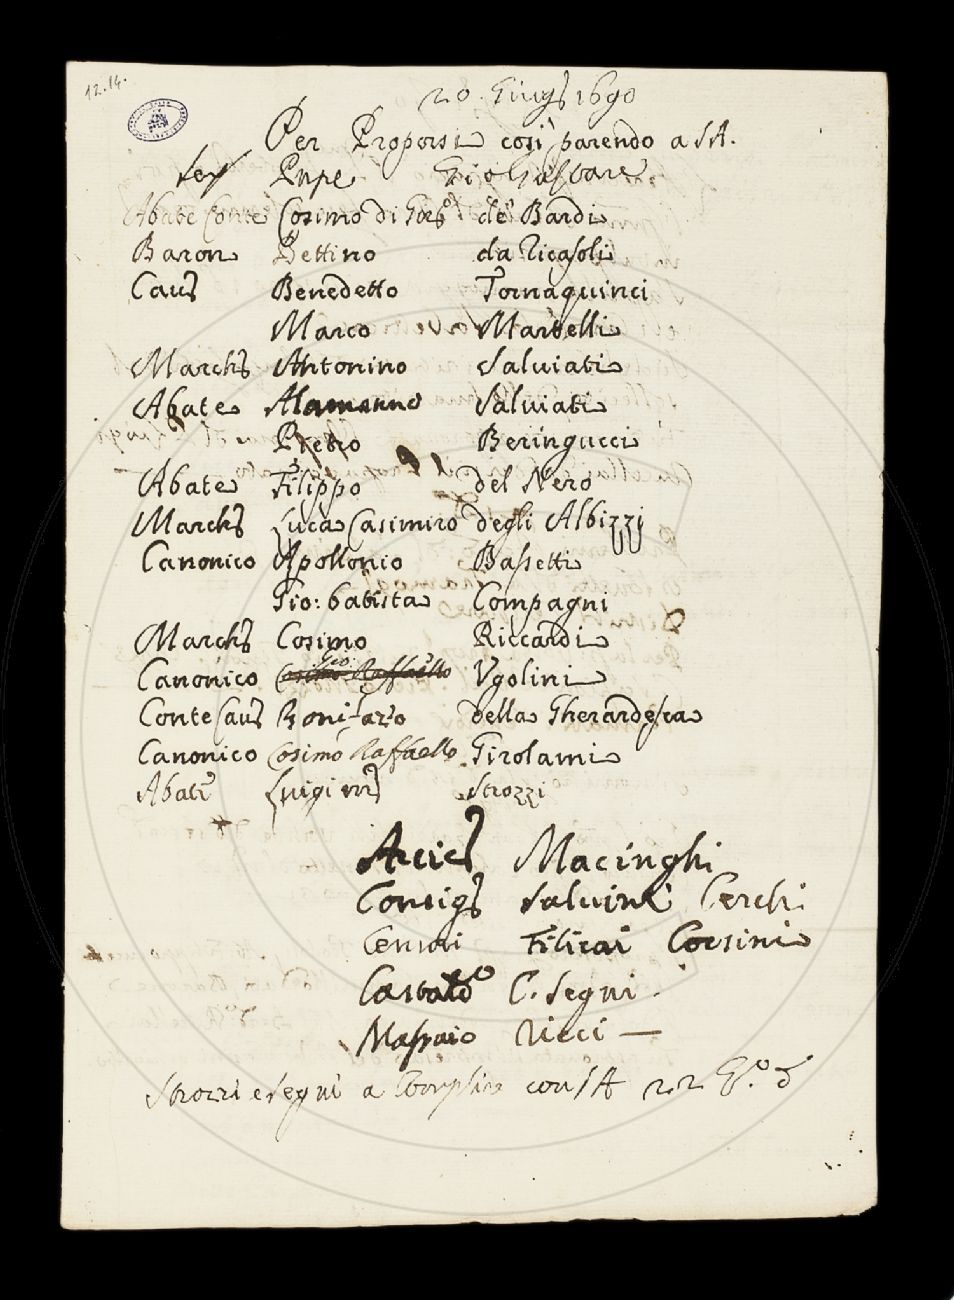 12.14.
20. Giug. 1690
Per Proporsi così parendo a SA.
Ser Pnpe Gio Gastare
Abate Conte Cosimo di de' Bardi
Baron Bettino da Ricasoli
Cav Benedetto Tornaquinci
Marco Martelli
March Antonino Salviati
Abate Alamanno Salviati
Pietro Beringucci
Abate Filippo del Nero
March Luca Casimiro degli Albizzi
Canonico Apollonio Bassetti
Gio: batista Compagni
March Cosimo Riccardi
Gio:
Canonico Cosimo Raffaello Ugolini
Conte Cav Bonifazio della Gherardesca
Canonico Cosimo Raffaello Girolami
Abate Luigi Strozzi
Arcics Macinghi
Consigs Salvini Cerchi
Censori Filicai Corsini
Castaldo C. Segni.
Massaio Ricci —
Strozzi e Segni a con SA 22 Go. d